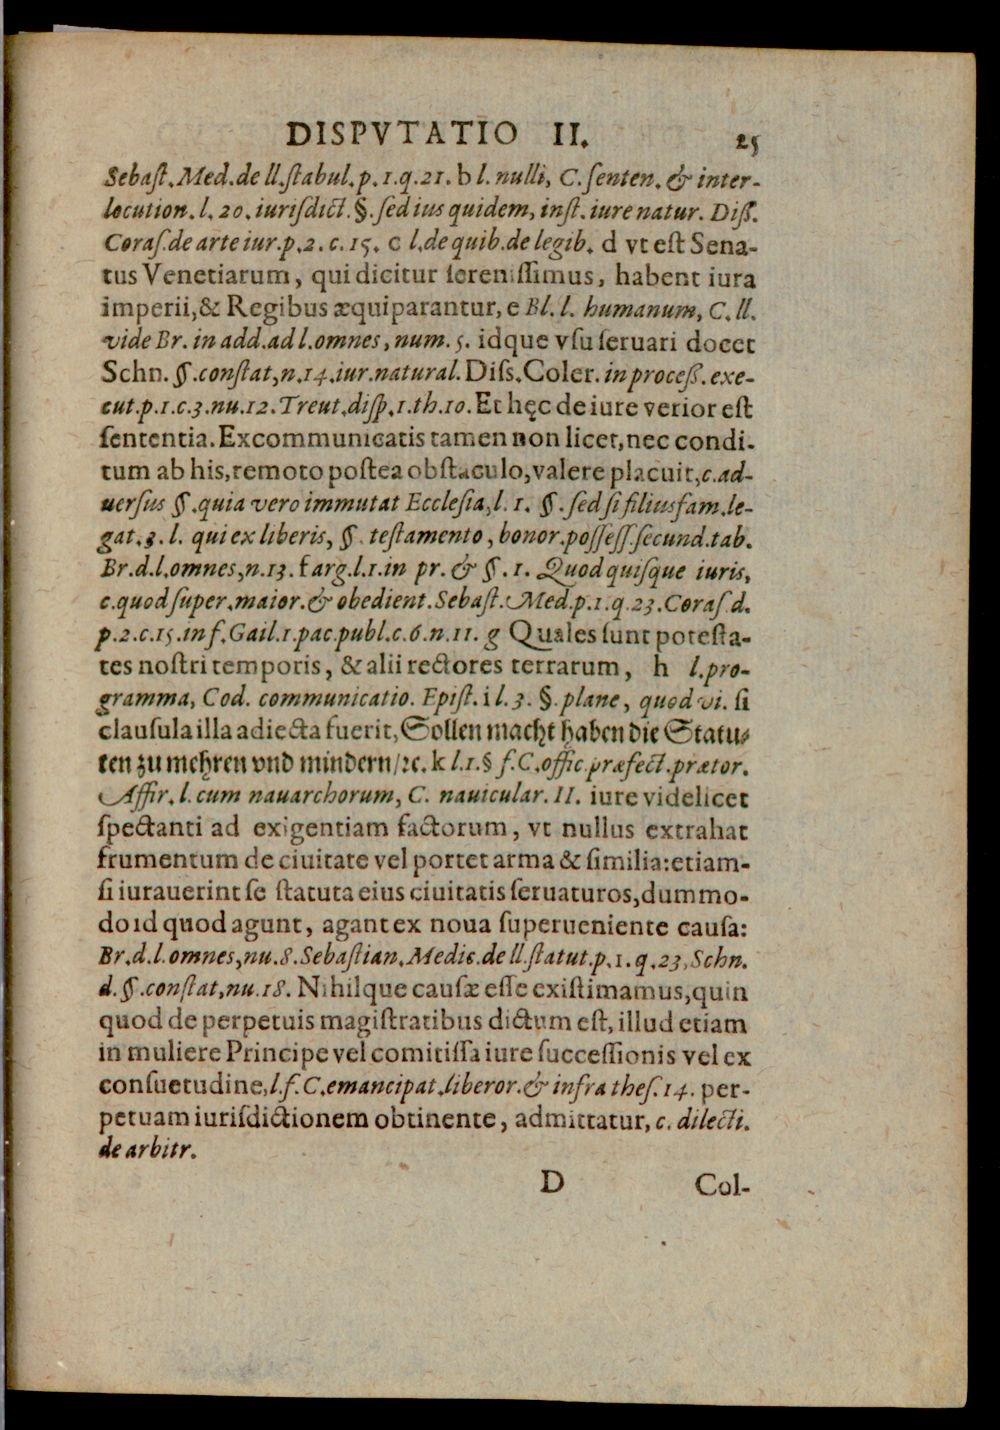 DISPVTATIO II. 25
Sebaſt. Med. de ll. ſtabul. p. 1. q. 21. b l. nulli, C. ſenten. & inter-
locution. l. 20. iuriſdict. §. ſed ius quidem, inſt. iure natur. Diſſ.
Coraſ. de arte iur. p. 2. c. 15. c l. de quib. de legib. d vt eſt Sena-
tus Venetiarum, qui dicitur ſereniſſimus, habent iura
imperii, & Regibus æquiparantur, e Bl. l. humanum, C. ll.
vide Br. in add. ad l. omnes, num. 5. idque vſu ſeruari docet
Schn. §. conſtat, n. 14. iur. natural. Diſs. Coler. in proceß. exe-
cut. p. 1. c. 3. nu. 12. Treut. diſp. 1. th. 10. Et hęc de iure verior eſt
ſententia. Excommunicatis tamen non licet, nec condi-
tum ab his, remoto poſtea obſtaculo, valere placuit, c. ad-
uerſus §. quia vero immutat Ecclesia, l. 1. §. ſed ſi filiusfam. le-
gat. 3. l. qui ex liberis, §. teſtamento, bonor. poſſeſſ. ſecund. tab.
Br. d. l. omnes, n. 13. f arg. l. 1. in pr. & §. 1. Quod quiſque iuris,
c. quod ſuper. maior. & obedient. Sebaſt. Med. p. 1. q. 23. Coraſ. d.
p. 2. c. 15. in f. Gail. 1. pac. publ. c. 6. n. 11. g Quales ſunt poteſta-
tes noſtri temporis, & alii rectores terrarum, h l. pro-
gramma, Cod. communicatio. Epiſt. i l. 3. §. plane, quod vi. ſi
clauſula illa adiecta fuerit, Sollen macht haben die Statu-
ten zu mehren vnd mindern/ ꝛc. k l. 1. § f. C. offic. præfect. prætor.
Affir. l. cum nauarchorum, C. nauicular. II. iure videlicet
ſpectanti ad exigentiam factorum, vt nullus extrahat
frumentum de ciuitate vel portet arma & ſimilia: etiam-
ſi iurauerint ſe ſtatuta eius ciuitatis ſeruaturos, dummo-
do id quod agunt, agant ex noua ſuperueniente cauſa:
Br. d. l. omnes, nu. 8. Sebaſtian. Medic. de ll. ſtatut. p. 1. q. 23. Schn.
d. §. conſtat, nu. 18. Nihilque cauſæ eſſe exiſtimamus, quin
quod de perpetuis magiſtratibus dictum eſt, illud etiam
in muliere Principe vel comitiſſa iure ſucceſſionis vel ex
conſuetudine, l. f. C. emancipat. liberor. & infra theſ. 14. per-
petuam iuriſdictionem obtinente, admittatur, c. dilecti.
de arbitr.
D Col-